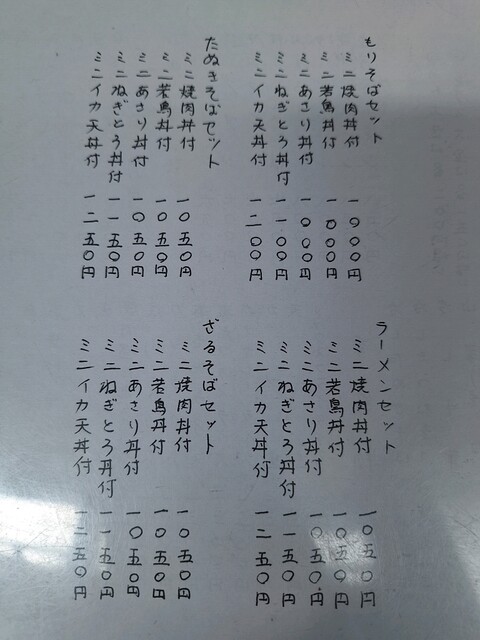 もりそばセット
ミニ焼肉丼付 一〇〇〇円
ミニ若鳥丼付 一〇〇〇円
ミニあさり丼付 一〇〇〇円
ミニねぎとろ丼付 一一〇〇円
ミニイカ天丼付 一二〇〇円
たぬきそばセット
ミニ焼肉丼付 一〇五〇円
ミニ若鳥丼付 一〇五〇円
ミニあさり丼付 一〇五〇円
ミニねぎとろ丼付 一一五〇円
ミニイカ天丼付 一二五〇円
ラーメンセット
ミニ焼肉丼付 一〇五〇円
ミニ若鳥丼付 一〇五〇円
ミニあさり丼付 一〇五〇円
ミニねぎとろ丼付 一一五〇円
ミニイカ天丼付 一二五〇円
ざるそばセット
ミニ焼肉丼付 一〇五〇円
ミニ若鳥丼付 一〇五〇円
ミニあさり丼付 一〇五〇円
ミニねぎとろ丼付 一一五〇円
ミニイカ天丼付 一二五〇円